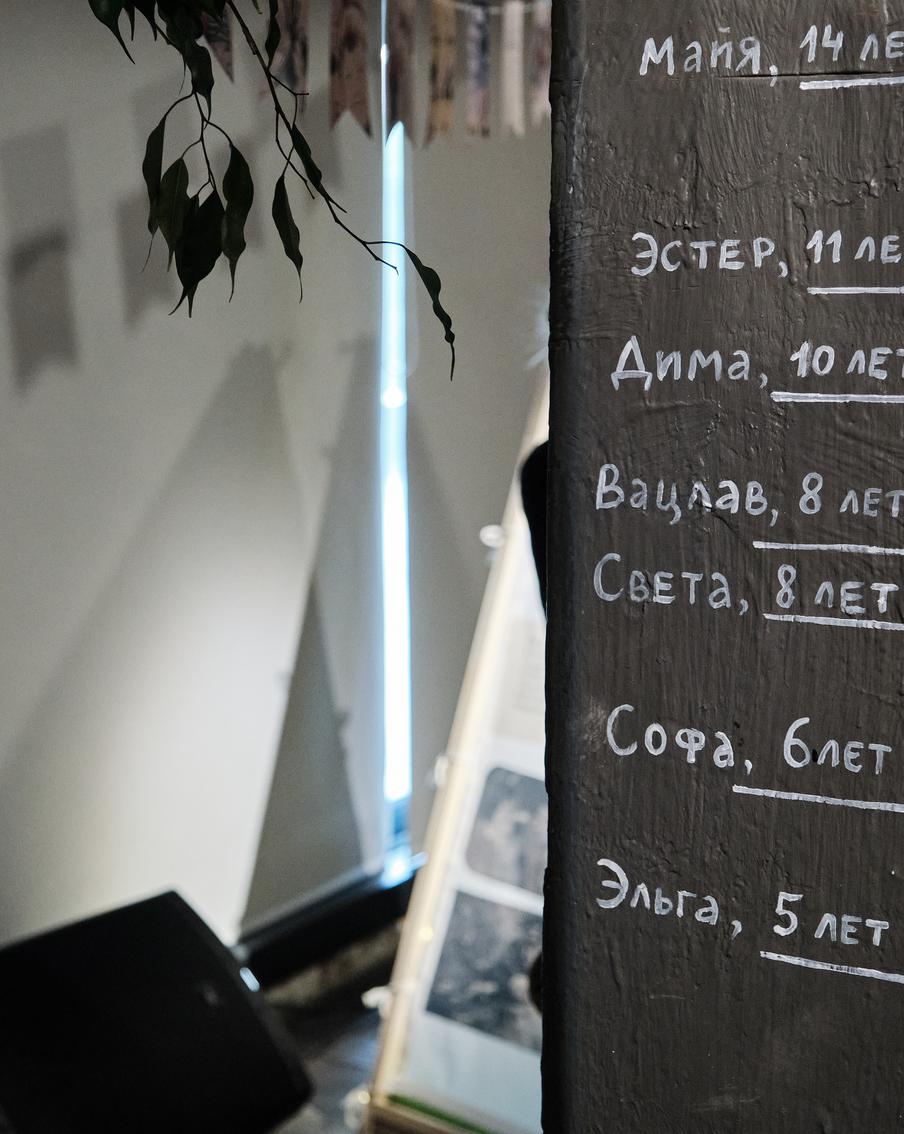 Майя, 14 ЛЕ
ЭСТЕР, 11 ЛЕ
Дима, 10 ЛЕТ
Вацлав, 8 ЛЕТ
СВЕТа, 8 ЛЕТ
Софа, 6 ЛЕТ
Эльга, 5 ЛЕТ